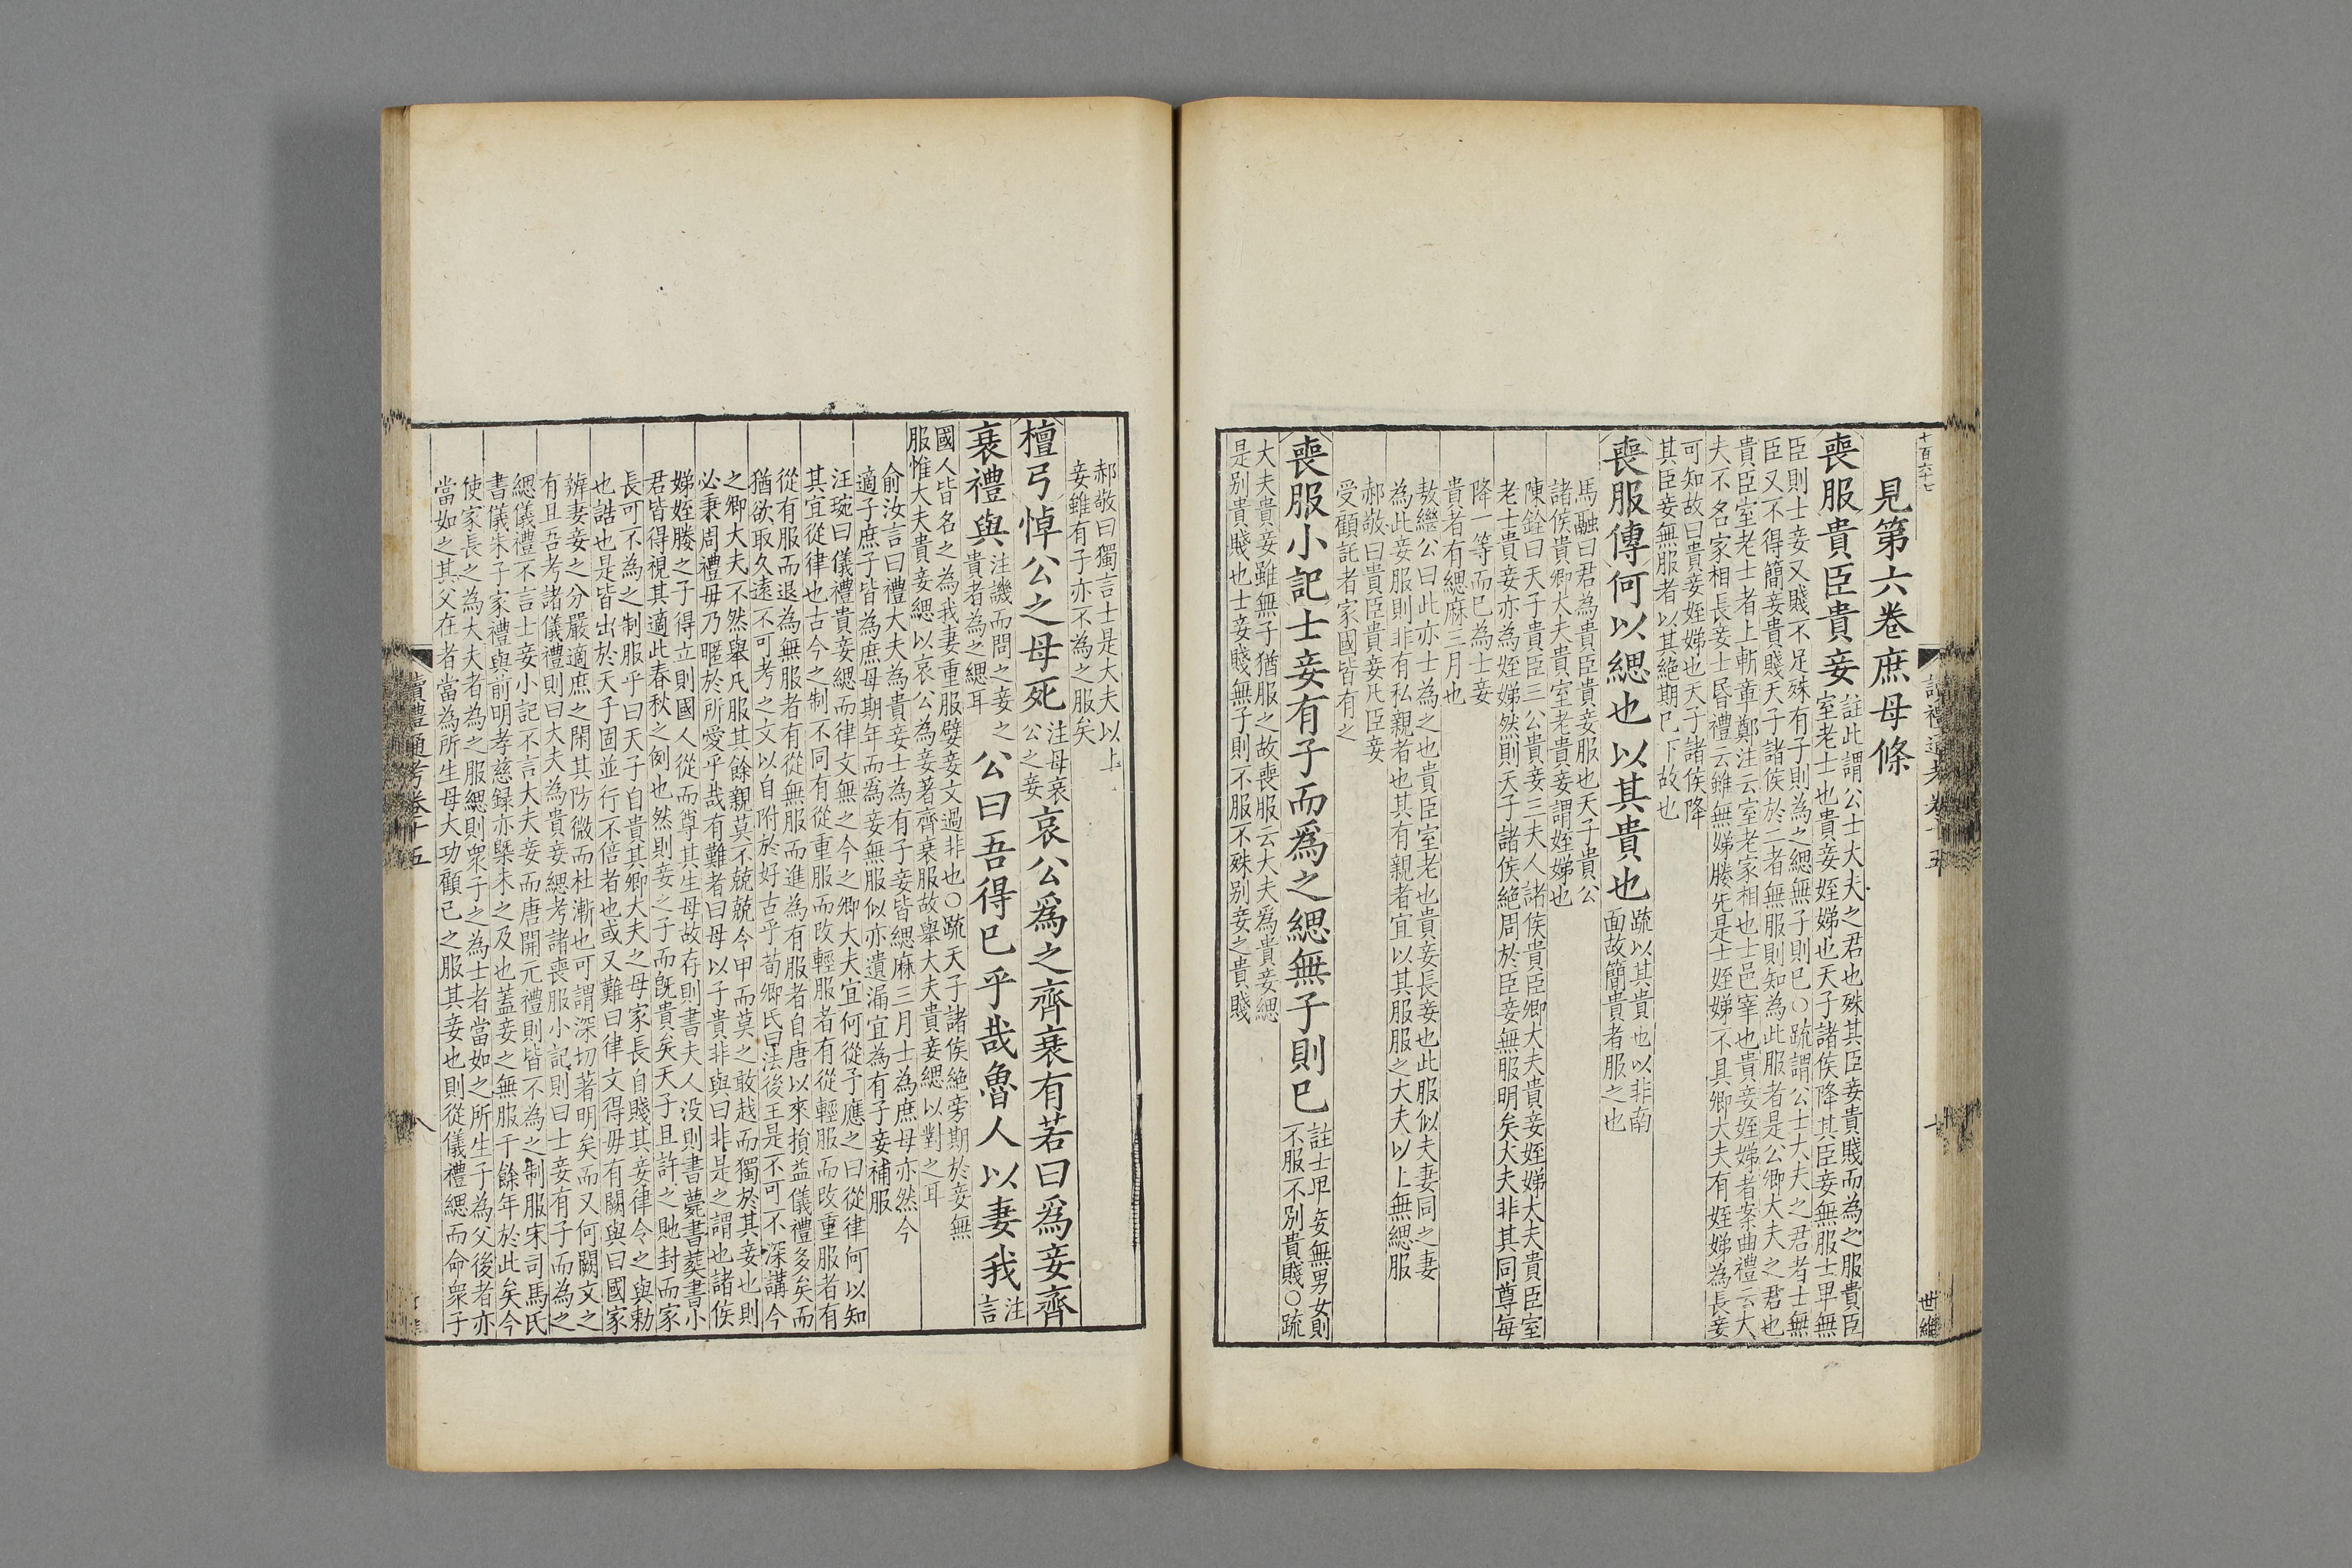 十百六十七
讀禮通考卷十五
世維
見第六卷庶母條
喪服貴臣貴妾
註此謂公士大夫之君也殊其臣妾貴賤而為之服貴臣
室老士也貴妾姪娣也天子諸侯降其臣妾無服士卑無
臣則士妾又賤不足殊有子則為之緦無子則已○疏謂公士大夫之君者士無
臣又不得簡妾貴賤天子諸侯於二者無服則知為此服者是公卿大夫之君也
貴臣室老士者上斬章鄭注云室老家相也士邑宰也貴妾姪娣者案曲禮云大
夫不名家相長妾士昏禮云雖無娣媵先是士姪娣不具卿大夫有姪娣為長妾
可知故曰貴妾姪娣也天子諸侯降
其臣妾無服者以其絕期已下故也
喪服傳何以緦也以其貴也
疏以其貴也以非南
面故簡貴者服之也
馬融曰君為貴臣貴妾服也天子貴公
諸侯貴卿大夫貴室老貴妾謂姪娣也
陳銓曰天子貴臣三公貴妾三夫人諸侯貴臣卿大夫貴妾姪娣大夫貴臣室
老士貴妾亦為姪娣然則天子諸侯絕周於臣妾無服明矣大夫非其同尊每
降一等而已為士妾
貴者有緦麻三月也
敖繼公曰此亦士為之也貴臣室老也貴妾長妾也此服似夫妻同之妻
為此妾服則非有私親者也其有親者宜以其服服之大夫以上無緦服
郝敬曰貴臣貴妾凡臣妾
受顧託者家國皆有之
喪服小記士妾有子而爲之緦無子則已
註士卑妾無男女則
不服不別貴賤○疏
大夫貴妾雖無子猶服之故喪服云大夫爲貴妾緦
是別貴賤也士妾賤無子則不服不殊別妾之貴賤
郝敬曰獨言士是大夫以上
妾雖有子亦不為之服矣
檀弓悼公之母死
注母哀
公之妾
哀公爲之齊衰有若曰爲妾齊
衰禮與
注譏而問之妾之
貴者為之緦耳
公曰吾得已乎哉魯人以妻我
注
言
國人皆名之為我妻重服嬖妾文過非也○疏天子諸侯絕旁期於妾無
服惟大夫貴妾緦以哀公為妾著齊衰服故舉大夫貴妾緦以對之耳
俞汝言曰禮大夫為貴妾士為有子妾皆緦麻三月士為庶母亦然今
適子庶子皆為庶母期年而爲妾無服似亦遺漏宜為有子妾補服
汪琬曰儀禮貴妾緦而律文無之今之卿大夫宜何從予應之曰從律何以知
其宜從律也古今之制不同有從重服而改輕服者有從輕服而改重服者有
從有服而退為無服者有從無服而進為有服者自唐以來損益儀禮多矣而
猶欲取久遠不可考之文以自附於好古乎荀卿氏曰法後王是不可不深講今
之卿大夫不然舉凡服其餘親莫不兢兢今甲而莫之敢越而獨於其妾也則
必秉周禮毋乃暱於所愛乎哉有難者曰母以子貴非與曰非是之謂也諸侯
娣姪媵之子得立則國人從而尊其生母故存則書夫人没則書薨書葬書小
君皆得視其適此春秋之例也然則妾之子而旣貴矣天子且許之貤封而家
長可不為之制服乎曰天子自貴其卿大夫之母家長自賤其妾律令之與勅
也誥也是皆出於天子固並行不倍者也或又難曰律文得毋有闕與曰國家
辨妻妾之分嚴適庶之閑其防微而杜漸也可謂深切著明矣而又何闕文之
有且吾考諸儀禮則曰大夫為貴妾緦考諸喪服小記則曰士妾有子而為之
緦儀禮不言士妾小記不言大夫妾而唐開元禮則皆不為之制服宋司馬氏
書儀朱子家禮與前明孝慈録亦槩未之及也蓋妾之無服千餘年於此矣今
使家長之為大夫者為之服緦則衆子之為士者當如之所生子為父後者亦
當如之其父在者當為所生母大功顧己之服其妾也則從儀禮緦而命衆子
讀禮通考卷十五
八